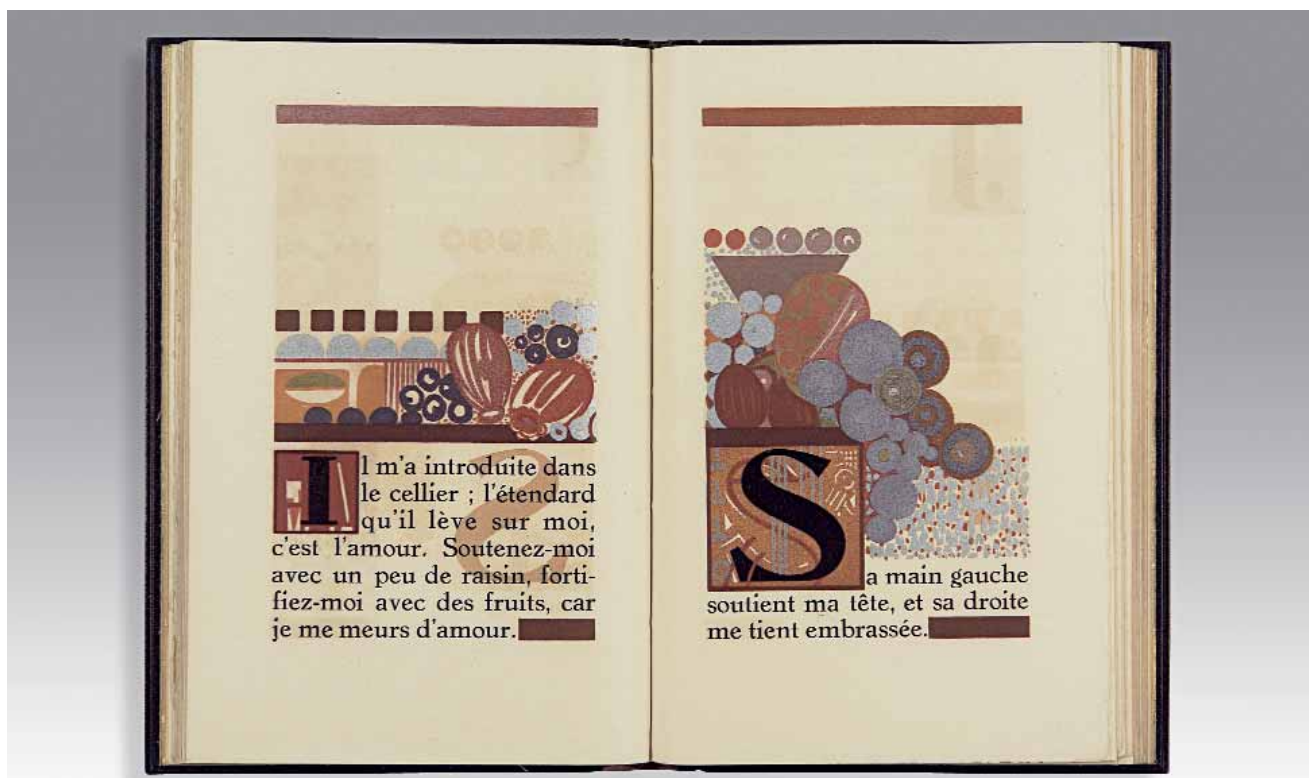 Il m'a introduite dans
le cellier ; l'étendard
qu'il lève sur moi,
c'est l'amour. Soutenez-moi
avec un peu de raisin, forti-
fiez-moi avec des fruits, car
je me meurs d'amour.
Sa main gauche
soutient ma tête, et sa droite
me tient embrassée.